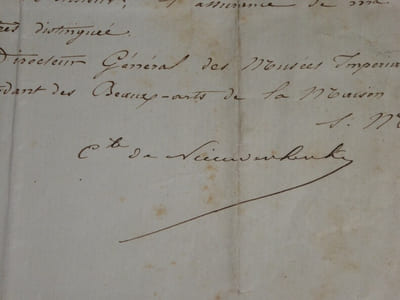 l'assurance de ma
très distinguée.
Directeur Général des Musées Impériau
ndant des Beaux-arts de la Maison
S. M
Cte de Nieuwerkerke